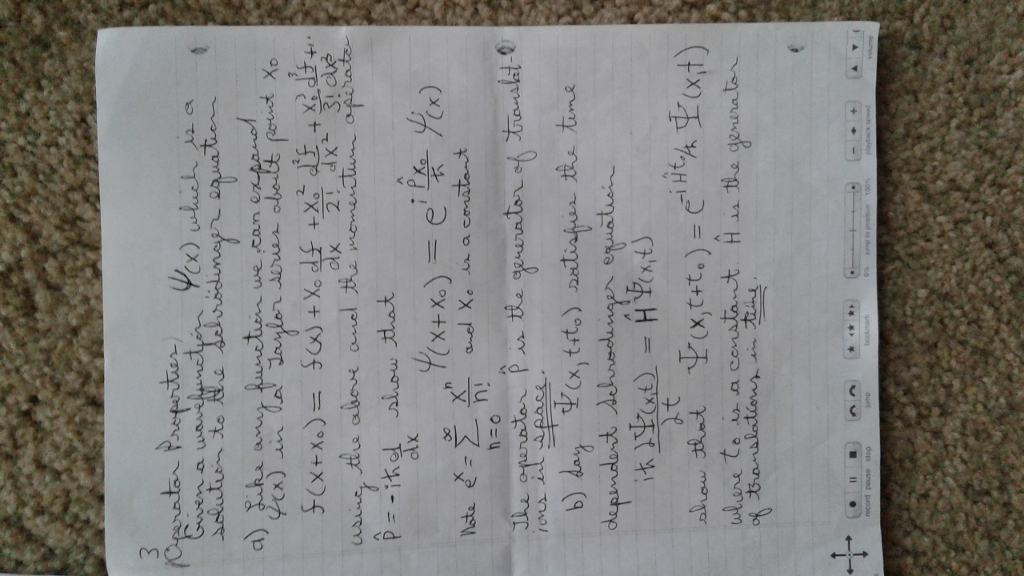 3
Operator Properties
Given a wavefunction ψ(x) which is a
solution to the Schrodinger equation
a) Like any function we can expand
ψ(x) in a Taylor series about point x₀
f(x+x₀) = f(x) + x₀ df/dx + x₀²/2! d²f/dx² + x₀³/3! d³f/dx³ + ..
using the above and the momentum operator
p̂ = -iħ d/dx show that
ψ(x+x₀) = e^{i p̂x₀/ħ} ψ(x)
Note eˣ = ∑_{n=0}^{∞} xⁿ/n! and x₀ is a constant
The operator p̂ is the generator of translat-
ions in space.
b) say Ψ(x,t+t₀) satisfies the time
dependent Schrodinger equation
iħ ∂Ψ(x,t)/∂t = ĤΨ(x,t)
show that Ψ(x,t+t₀) = e^{-iĤt₀/ħ} Ψ(x,t)
where t₀ is a constant Ĥ is the generator
of translations in time.
record pause stop
jump
bookmark
0% jump to position 100%
playback speed
volume